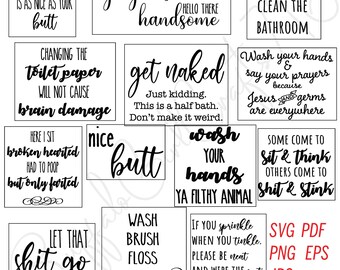 IS AS NICE AS YOUR
butt
HELLO THERE
handsome
CLEAN THE
BATHROOM
CHANGING THE
toilet paper
WILL NOT CAUSE
brain damage
get naked
Just kidding.
This is a half bath.
Don't make it weird.
Wash your hands
& say your prayers
because
Jesus and germs
are everywhere
HERE I SIT
broken hearted
HAD TO POOP
but only farted
nice
butt
wash
YOUR
hands
YA FILTHY ANIMAL
SOME COME TO
Sit & Think
OTHERS COME TO
Shit & Stink
LET THAT
shit go
WASH
BRUSH
FLOSS
IF YOU sprinkle
WHEN YOU tinkle,
PLEASE BE neat
AND WIPE THE seat
SVG PDF
PNG EPS
JPG